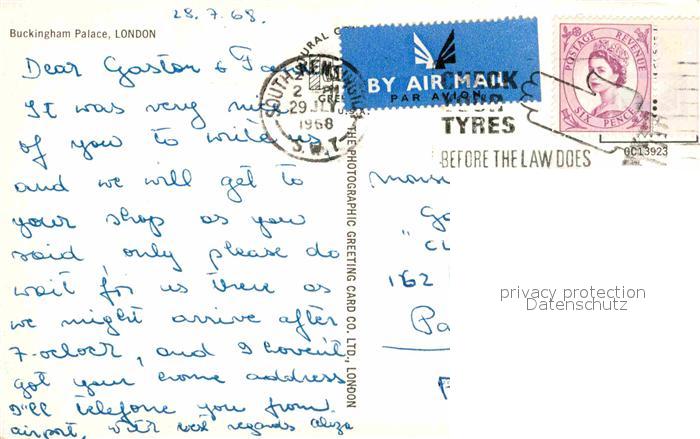 28.7.68.
Buckingham Palace, LONDON
Dear Gaston &
It was very nice
of you to write us
and we will get to
your shop as you
said, only please do
wait for us there as
we might arrive after
7-oclock, and I havent
got your home address
I'll telefone you from
airport, with best regards aliza
THE PHOTOGRAPHIC GREETING CARD CO., LTD., LONDON
SOUTH KENSINGTON
2 PM
29 JLY
1968
S.W.7
BY AIR MAIL
PAR AVION
YOUR
TYRES
BEFORE THE LAW DOES
POSTAGE REVENUE
SIX PENCE
0C13923
"
162
Pa
privacy protection
Datenschutz